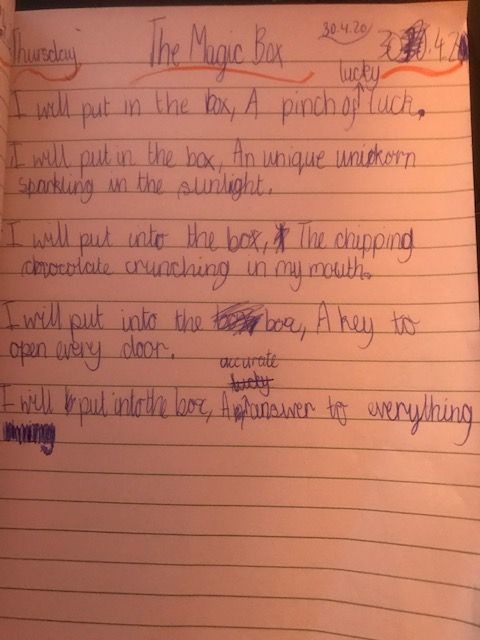 30.4.20
Thursday The Magic Box 30.4.20
lucky
I will put in the box, A pinch of luck.
I will put in the box, An unique unickorn
sparkling in the sunlight.
I will put into the box, The chipping
chocolate crunching in my mouth.
I will put into the box, A key to
open every door.
accurate
lucky
I will put into the box, An answer to everything